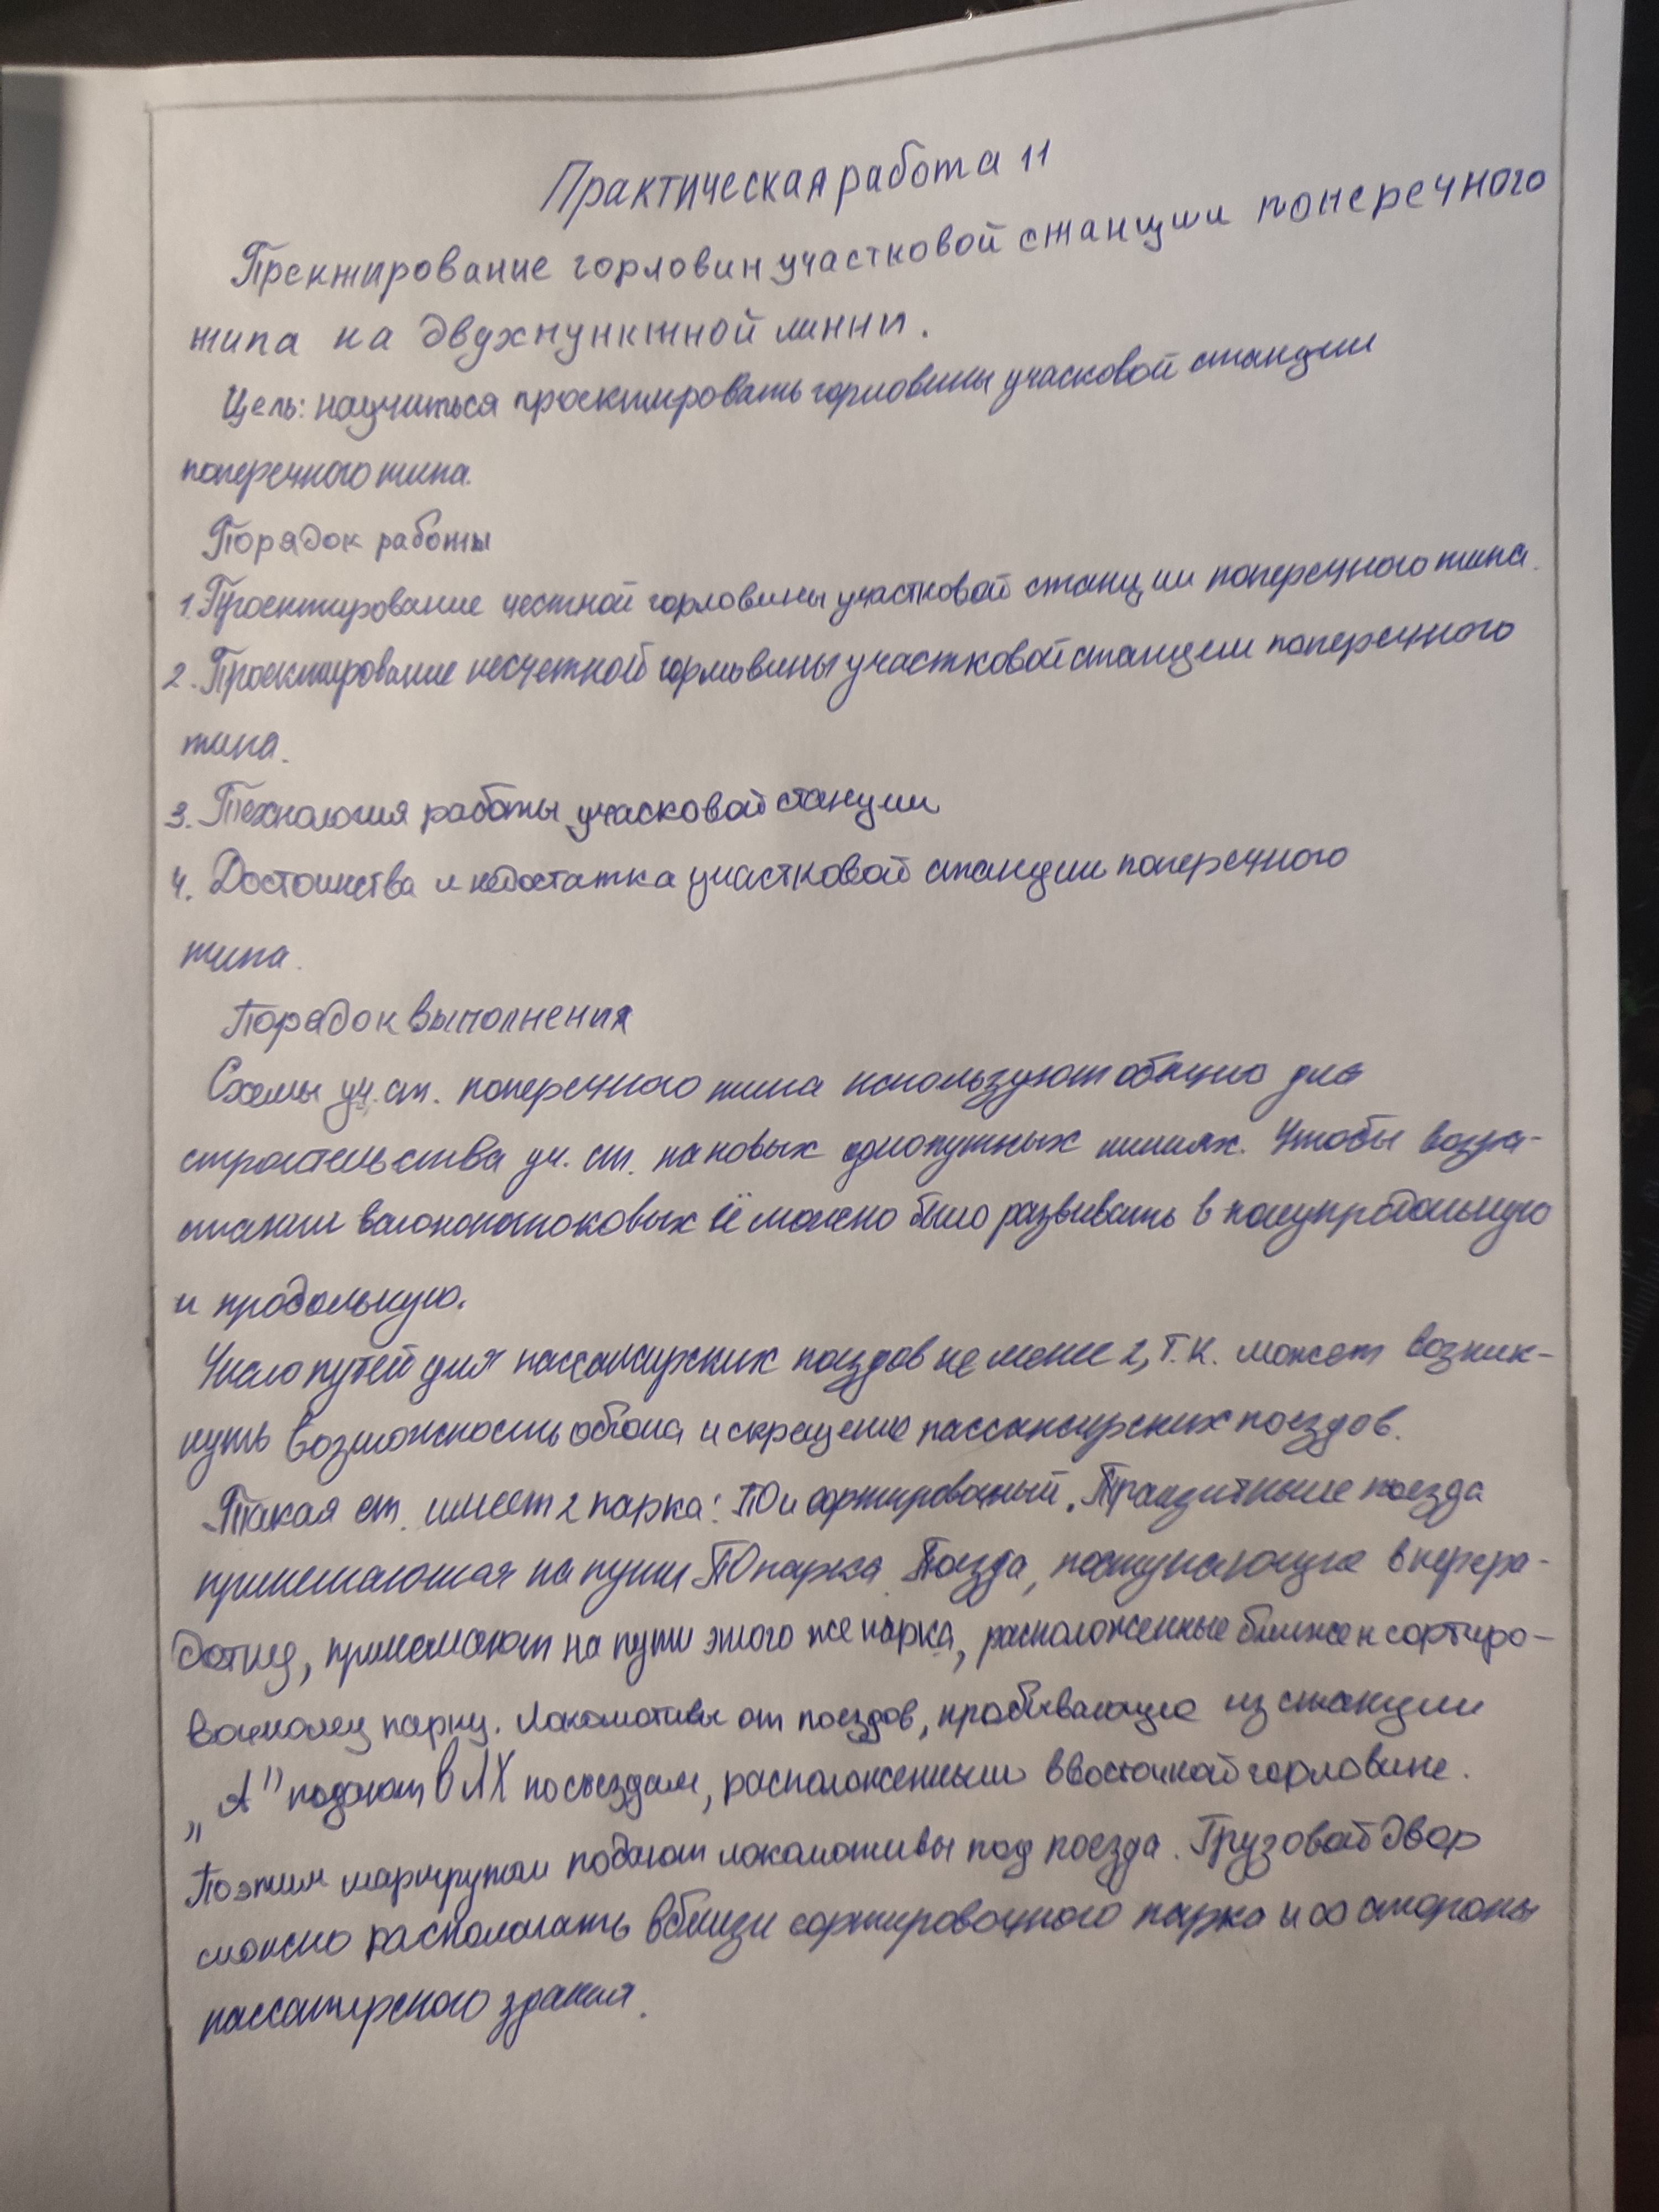 Практическая работа 11
Пректирование горловин участковой станции поперечного
типа на двухпунктной линни.
Цель: научиться проектировать горловины учасковой станции
поперечного типа.
Порядок работы
1. Проектирование честной горловины участковой станции поперечного типа.
2. Проектирование несчетной горловины участковой станции поперечного
типа.
3. Технология работы учасковой станции
4. Достоинства и недостатка участковой станции поперечного
типа.
Порядок выполнения
Схемы уч. ст. поперечного типа используют обычно для
строительства уч. ст. на новых однопутных линиях. Чтобы возра-
стании вагонопотоковых её можно было развивать в полупродольную
и продольную.
Число путей для пассажирских поездов не мене 2, т.к. может возник-
нуть возможность обгона и скрещение пассажирских поездов.
Такая ст. имеет 2 парка: ПО и сортировочный. Транзитные поезда
принимаются на пути ПО парка. Поезда, поступающие в перера-
ботку, принимают на пути этого же парка, расположенные ближе к сортиро-
вочному парку. Локомотивы от поездов, пробывающие из станции
„А" подают в ЛХ по съездам, расположенными в восточной горловине.
По этим маршрутам подают локомотивы под поезда. Грузовой двор
можно располагать вблизи сортировочного парка и со стороны
пассажирского здания.